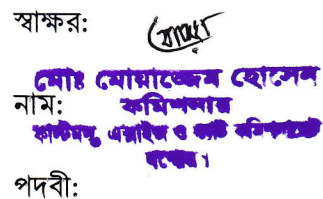 স্বাক্ষর:
মোঃ মোয়াজ্জেম হোসেন
নাম: কমিশনার
কাস্টমস, এক্সাইজ ও ভ্যাট কমিশনারেট
যশোর।
পদবী: